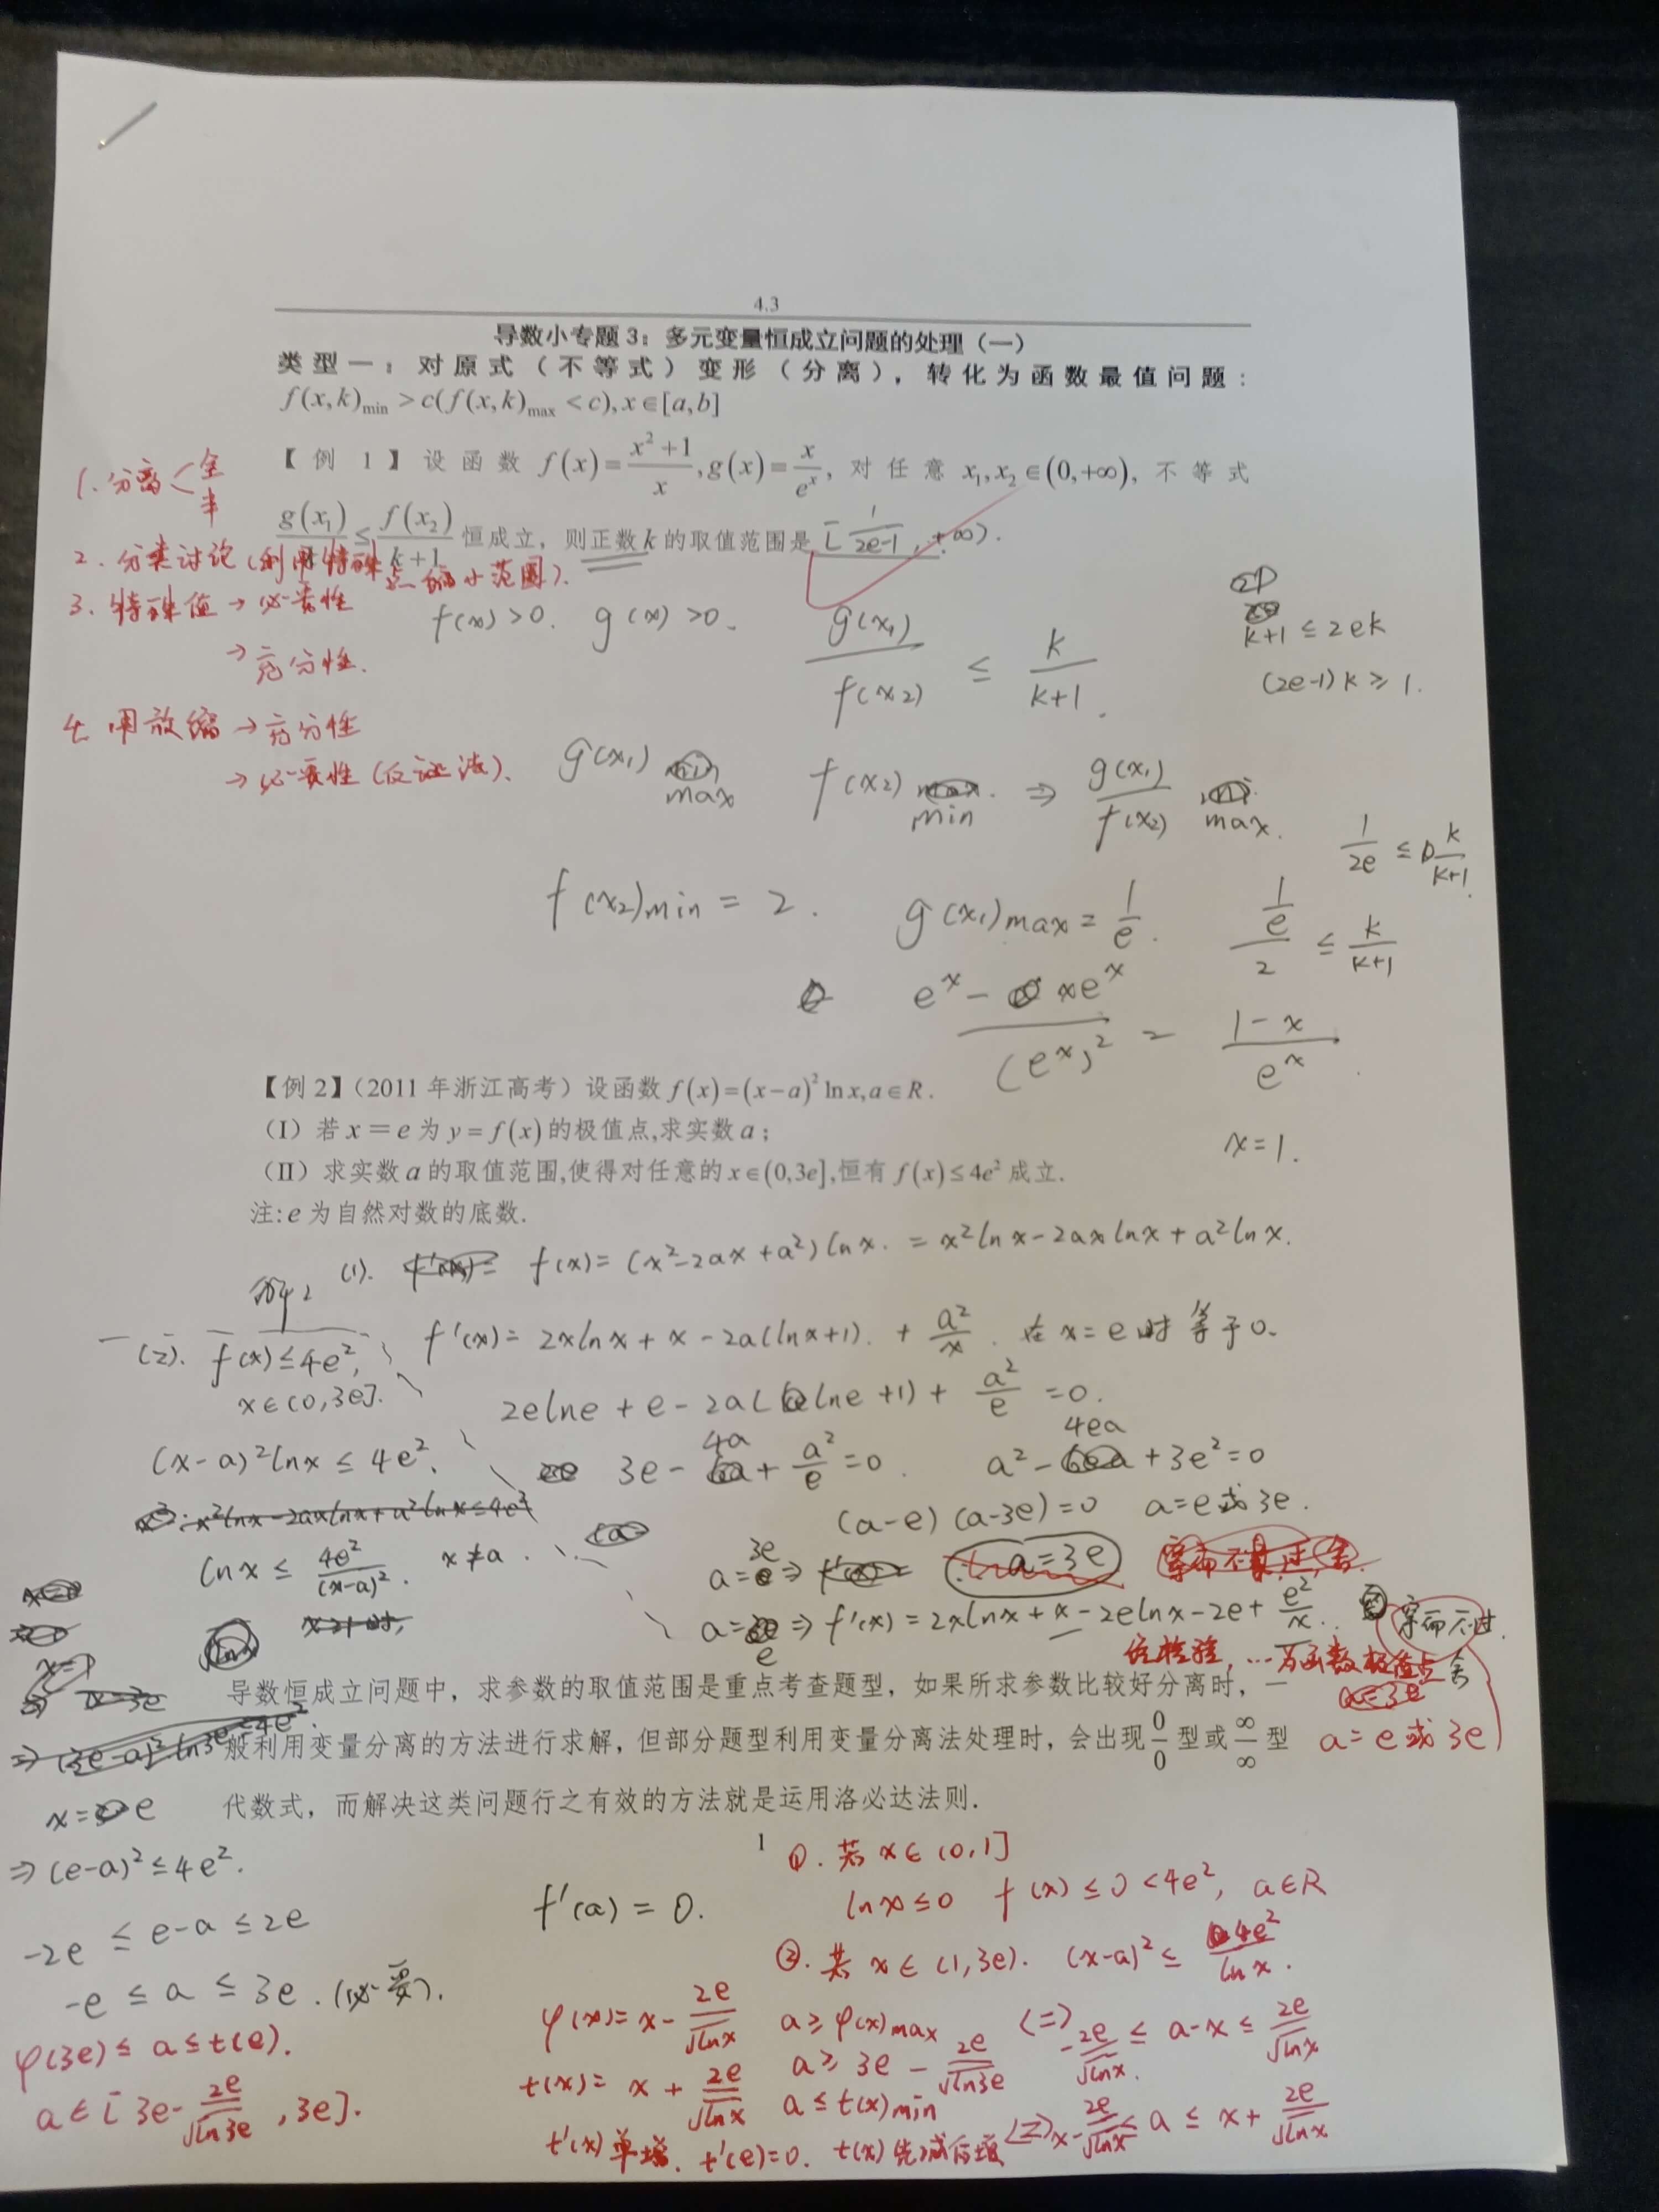 4.3
导数小专题 3：多元变量恒成立问题的处理（一）
类型一：对原式（不等式）变形（分离），转化为函数最值问题：
f(x,k)min > c(f(x,k)max < c), x∈[a,b]
【例 1】设函数 f(x)=(x²+1)/x, g(x)=x/e^x, 对任意 x₁,x₂∈(0,+∞), 不等式
g(x₁)/ ≤ f(x₂)/(k+1) 恒成立，则正数 k 的取值范围是 [1/(2e-1), +∞).
1. 分离 < 全 半
2. 分类讨论（利用特殊点缩小范围）.
3. 特殊值 → 必要性
→ 充分性.
4. 用放缩 → 充分性
→ 必要性（反证法）.
f(x)>0. g(x)>0.
g(x₁)/f(x₂) ≤ k/(k+1).
即
k+1 ≤ 2ek
(2e-1)k ≥ 1.
g(x₁) max f(x₂) min ⇒ g(x₁)/f(x₂) max.
1/2e ≤ k/(k+1).
f(x₂)min = 2. g(x₁)max = 1/e. (1/e)/2 ≤ k/(k+1)
(e^x - xe^x)/(e^x)² = (1-x)/e^x
x=1.
【例 2】（2011 年浙江高考）设函数 f(x)=(x-a)² ln x, a∈R.
（I）若 x＝e 为 y=f(x) 的极值点,求实数 a；
（II）求实数 a 的取值范围,使得对任意的 x∈(0,3e],恒有 f(x)≤4e² 成立.
注: e 为自然对数的底数.
解: (1). f(x)=(x²-2ax+a²)lnx. = x²lnx-2axlnx+a²lnx.
f'(x)=2xlnx+x-2a(lnx+1). + a²/x. 在 x=e 时 等于0.
2elne+e-2a(lne+1)+a²/e=0.
3e-4a+a²/e=0. a²-4ea+3e²=0
(a-e)(a-3e)=0 a=e或3e.
a=3e ⇒ a=3e
a=e ⇒ f'(x)=2xlnx+x-2elnx-2e+e²/x. 穿而不过.
舍
经检验, …为函数极值点
a=e或3e
(2). f(x)≤4e²,
x∈(0,3e].
(x-a)²lnx ≤ 4e².
x²lnx-2axlnx+a²lnx≤4e²
lnx ≤ 4e²/(x-a)². x≠a.
导数恒成立问题中，求参数的取值范围是重点考查题型，如果所求参数比较好分离时，一
般利用变量分离的方法进行求解，但部分题型利用变量分离法处理时，会出现 0/0 型或 ∞/∞ 型
代数式，而解决这类问题行之有效的方法就是运用洛必达法则.
1
x=e
⇒ (e-a)²≤4e².
-2e ≤ e-a ≤ 2e
-e ≤ a ≤ 3e. (必要).
φ(3e) ≤ a ≤ t(e).
a∈[3e-2e/√ln3e, 3e].
f'(a)=0.
①. 若 x∈(0,1]
lnx≤0 f(x)≤0<4e², a∈R
②. 若 x∈(1,3e). (x-a)² ≤ 4e²/lnx.
⇔ -2e/√lnx ≤ a-x ≤ 2e/√lnx
⇔ x-2e/√lnx ≤ a ≤ x+2e/√lnx
φ(x)=x-2e/√lnx a≥φ(x)max
a≥3e-2e/√ln3e
t(x)=x+2e/√lnx a≤t(x)min
t'(x)单增. t'(e)=0. t(x)先减后增